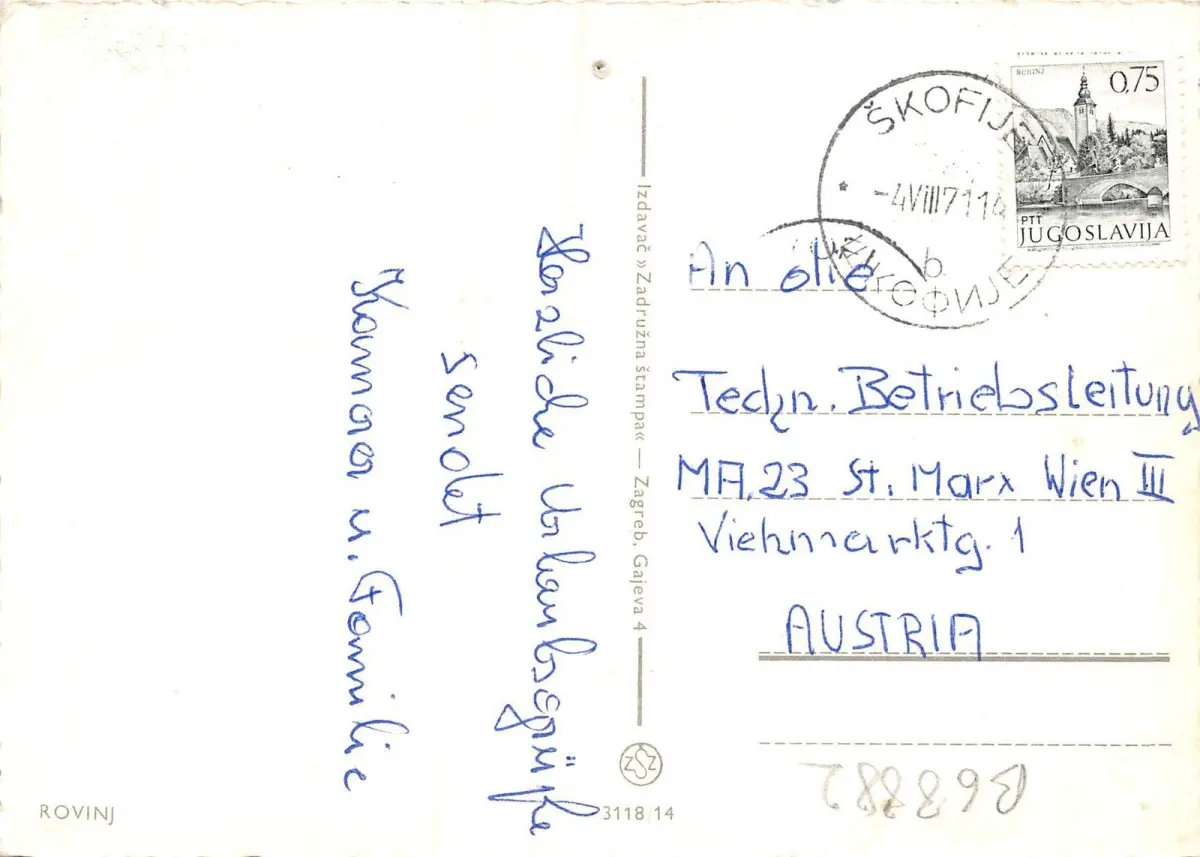 Herzliche Urlaubsgrüße
sendet
u. Familie
Izdavač »Zadružna štampa« — Zagreb, Gajeva 4
ZSZ
ROVINJ
3118/14
BOHINJ
0,75
PTT
JUGOSLAVIJA
ŠKOFIJE
-4VIII7114
b
ШКОФИЈЕ
An die
Techn. Betriebsleitung
MA.23 St. Marx Wien III
Viehmarktg. 1
AUSTRIA
B68882